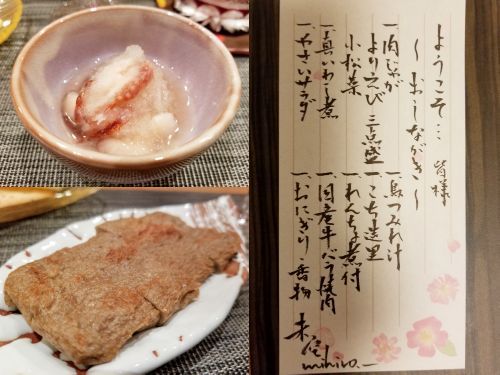 ようこそ… 皆様
〜おしながき〜
一肉じゃが
よりえび 三点盛
小松菜
一真いわし煮
一やさいサラダ
一鳥つみれ汁
一こち造里
一れんちょ煮付
一国産牛バラ焼肉
一おにぎり 香物
mihiro